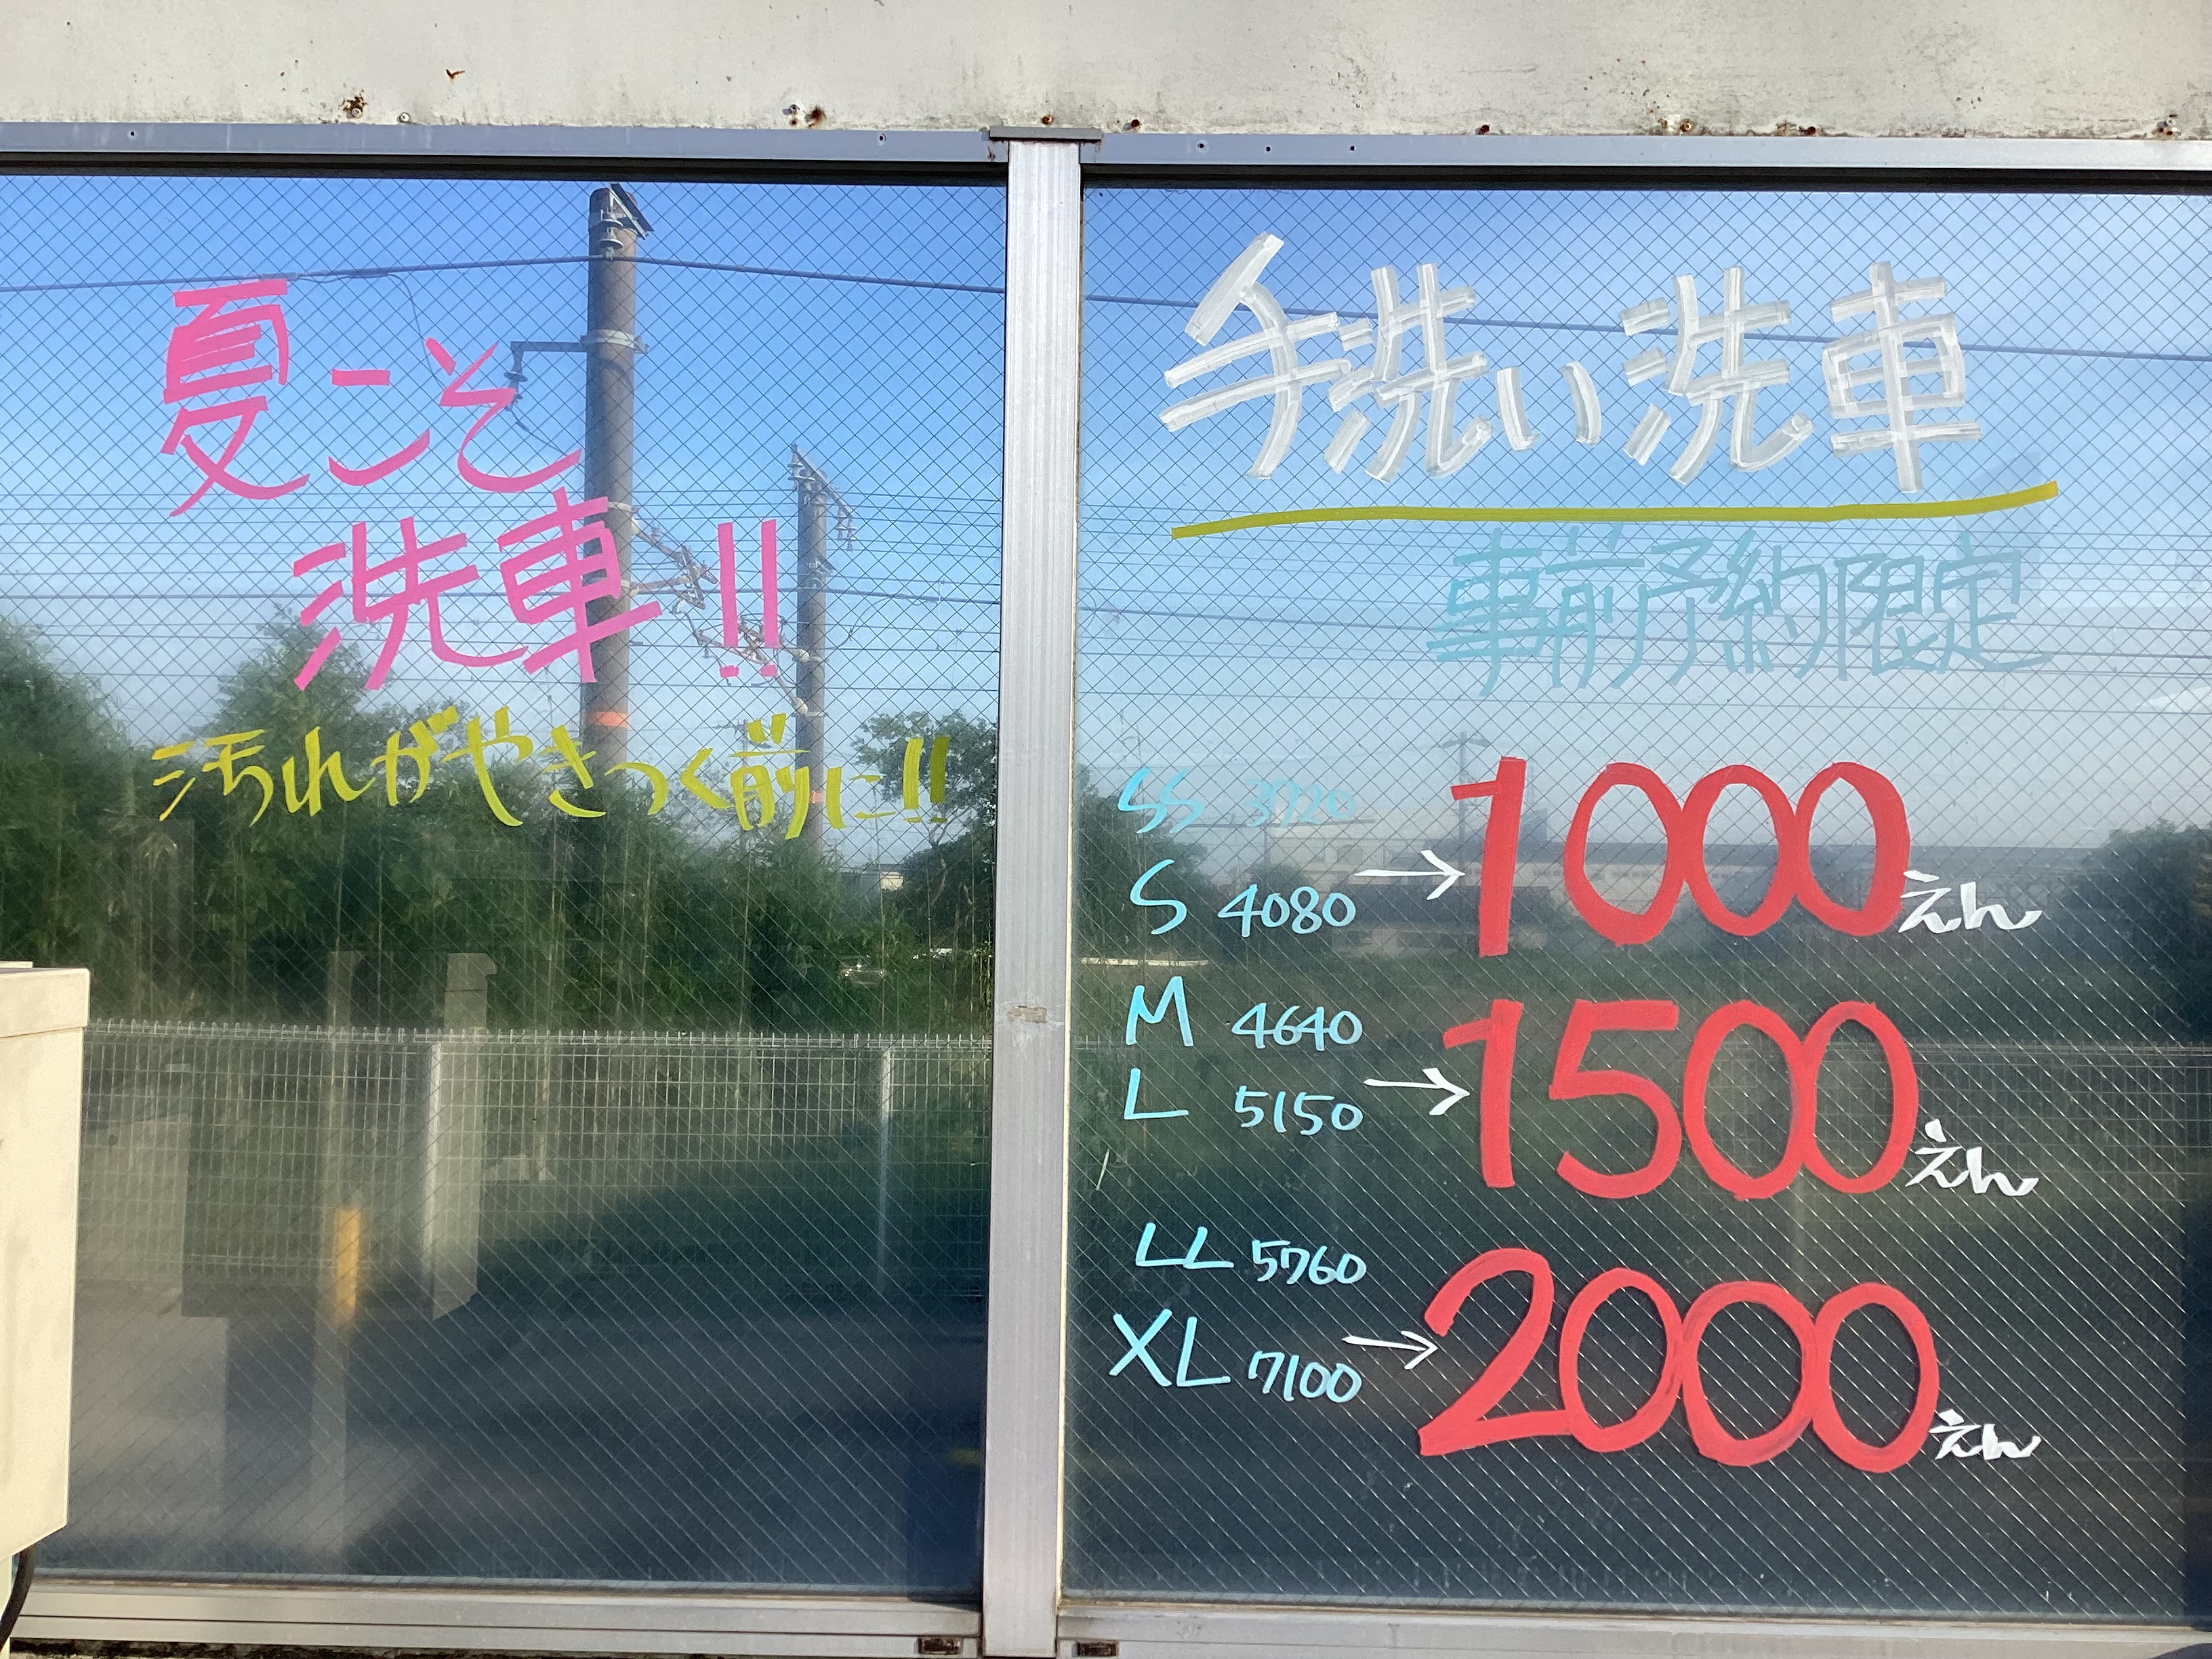 夏こそ
洗車!!
汚れがやきつく前に!!
手洗い洗車
事前予約限定
SS 3720
S 4080 → 1000えん
M 4640
L 5150 → 1500えん
LL 5760
XL 7100 → 2000えん